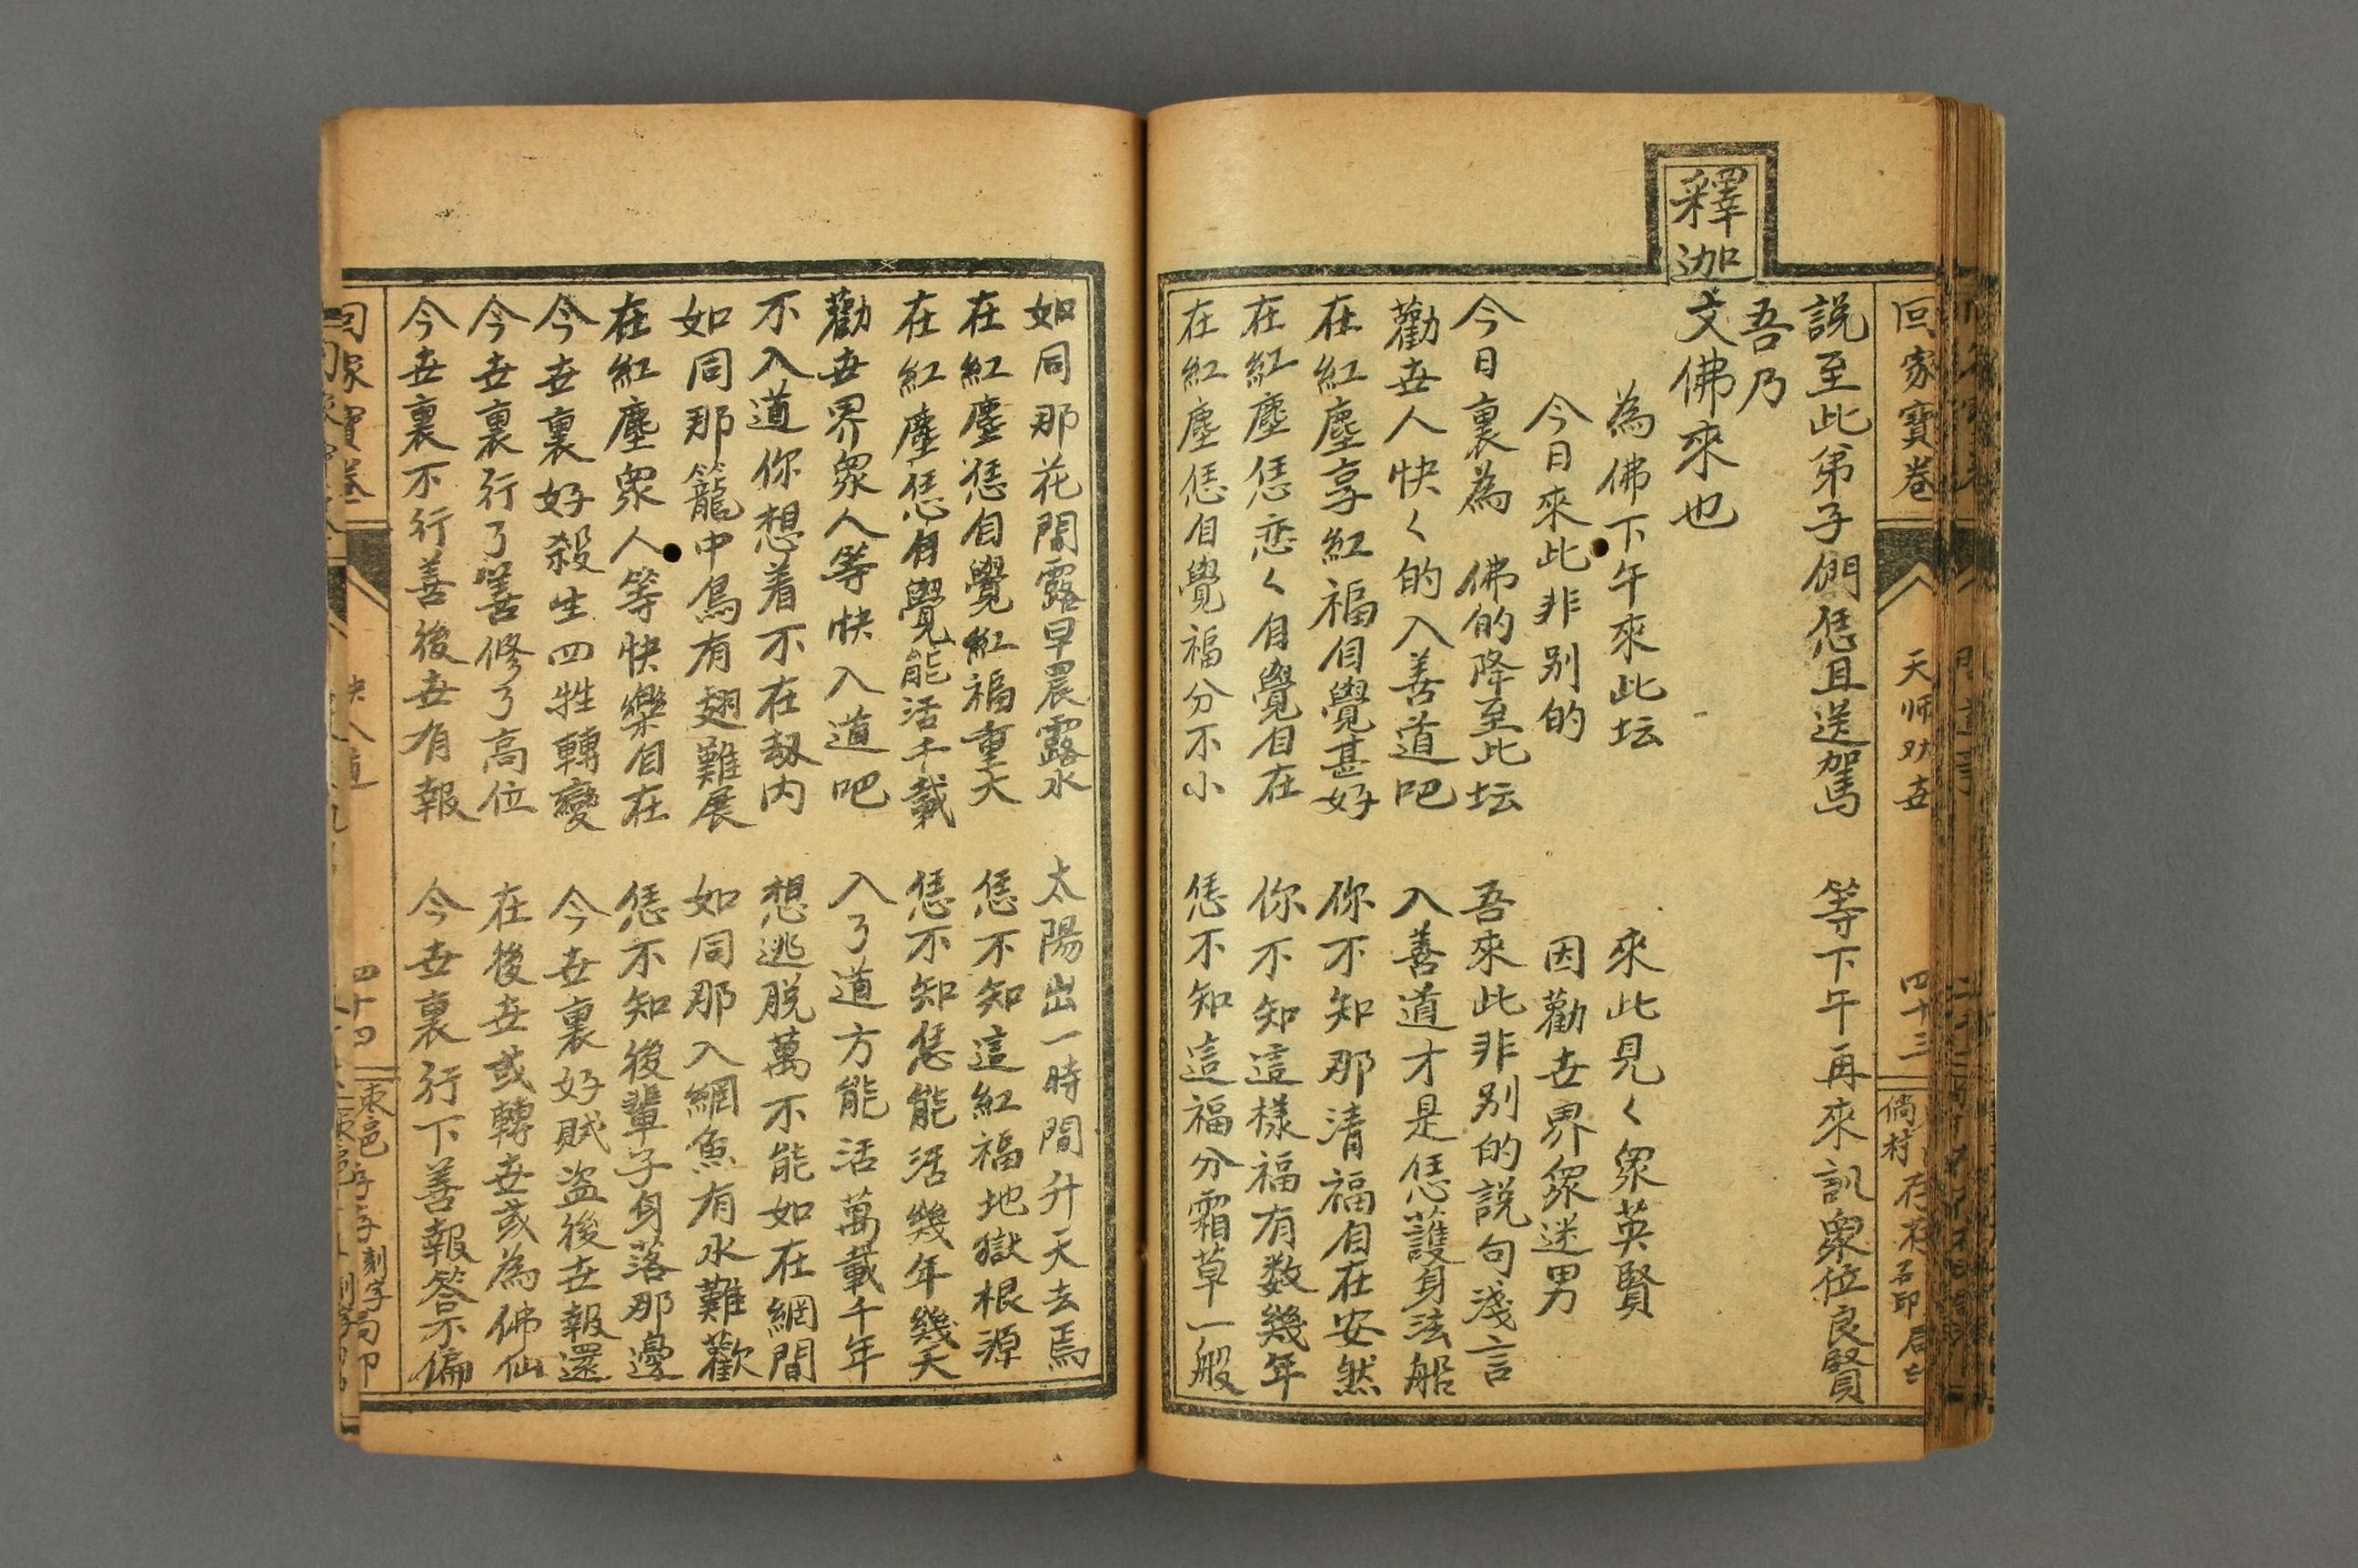 回家寶卷 天师劝世 四十三
説至此弟子們恁且送駕 等下午再來訊衆位良賢
吾乃
釋迦文佛來也
為佛下午來此坛 來此見く衆英賢
今日來此非别的 因勸世界衆迷男
今日裏為 佛的降至此坛 吾來此非别的説句淺言
勸世人快く的入善道吧 入善道才是恁護身法船
在紅塵享紅福自覺甚好 你不知那清福自在安然
在紅塵恁恋く自覺自在 你不知這樣福有数幾年
在紅塵恁自覺福分不小 恁不知這福分霜草一般
如同那花開露早晨露水 太陽出一時間升天去焉
在紅塵恁自覺紅福重大 恁不知這紅福地獄根源
在紅塵恁自覺能活千載 恁不知恁能活幾年幾天
勸世界衆人等快入道吧 入了道方能活萬載千年
不入道你想着不在劫内 想逃脱萬不能如在網間
如同那籠中鳥有翅難展 如同那入網魚有水難歡
在紅塵衆人等快樂自在 恁不知後輩子身落那邊
今世裏好殺生四牲轉變 今世裏好賊盗後世報還
今世裏行了善修了高位 在後世或轉世或為佛仙
今世裏不行善後世有報 今世裏行下善報答不偏
回家寶卷 快入道 四十四